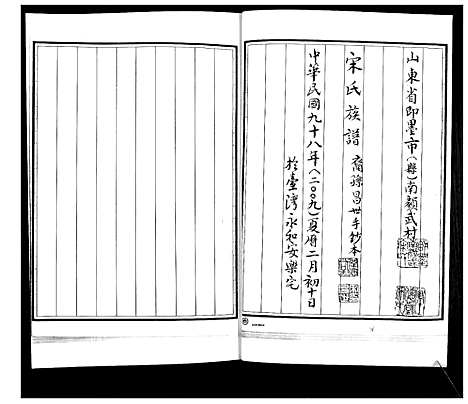 山東省即墨市（縣）南顏武村
宋氏族譜 裔孫昌世手鈔本
中華民國九十八年（二〇〇九）夏曆二月初十日
於臺灣永和安樂宅